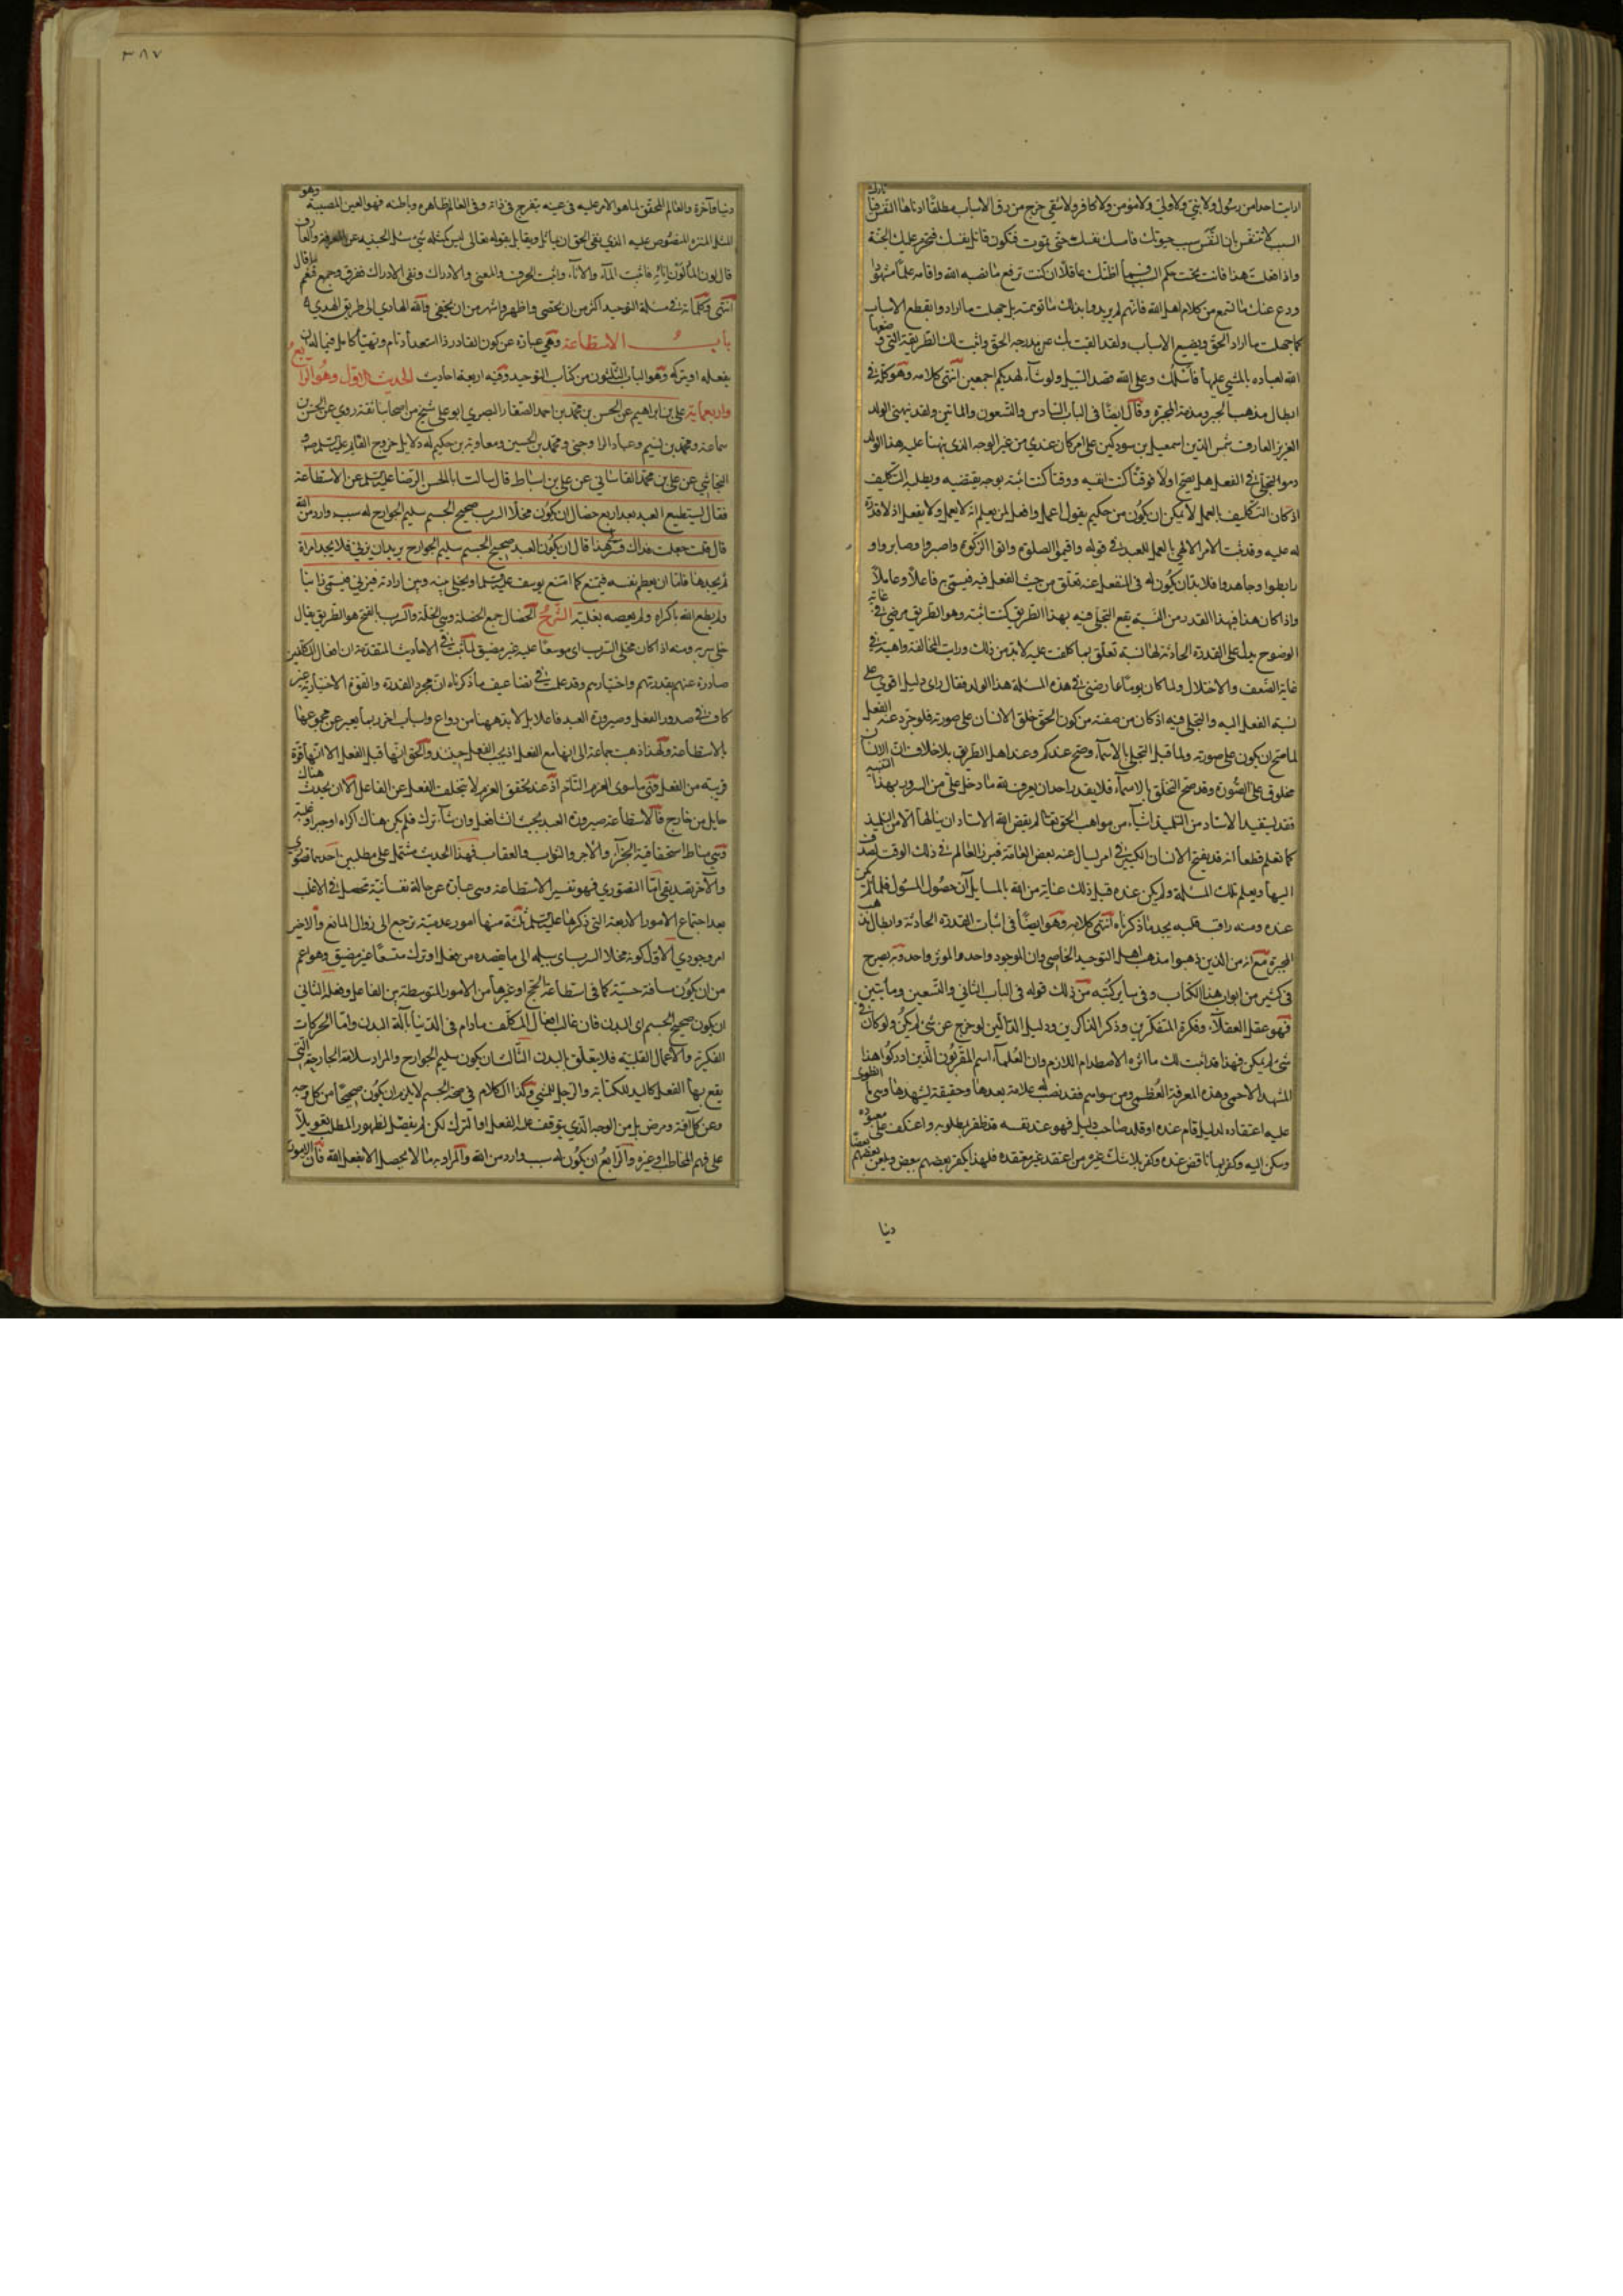 ارايت احدا من رسول ولا نبي ولا ولي ولا مؤمن ولا كافر ولا شقي خرج من رق الاسباب مطلقا ادناها التنفس فيا تارك
السبب لا تتنفس فان التنفس سبب حيوتك فامسك نفسك حتى تموت فتكون قاتل نفسك فتحرم عليك الجنة
واذا فعلت هذا فانت تحت حكم السبب فما اظنك عاقلا ان كنت ترفع ما نصبه الله واقامه علما مشهودا
ودع عنك ما تسمع من كلام اهل الله فانهم لم يريدوا بذلك ما توهمته بل جهلت ما ارادوا بقطع الاسباب
كما جهلت ما اراد الحق بوضع الاسباب ولقد القيت بك عن مدرجة الحق وابنت لك الطريقة التي وضعها
الله لعباده بالمشي عليها فاسلك وعلى الله قصد السبيل ولو شاء لهديكم اجمعين انتهى كلامه وهو كلمة في
ابطال مذهب الجبر ومذمة المجبرة وقال ايضا في الباب السادس والتسعون والماتين ولقد نبهني الولد
العزيز العارف شمس الدين اسمعيل بن سودكين على امر كان عندي من غير الوجه الذي نبهنا عليه هذا الولد
وهو التجلي في الفعل هل يصح اولا فوقتا كنت انفيه ووقتا كنت اثبته بوجه يقتضيه ويطلبه التكليف
اذ كان التكليف بالعمل لا يمكن ان يكون من حكيم يقول اعمل وافعل لمن يعلم انه لا يعمل ولا يفعل اذ لا قدرة
له عليه وقد ثبت الامر الالهي بالعمل للعبد في قوله واقيموا الصلوة واتوا الزكوة واصبروا وصابروا و
رابطوا وجاهدوا فلا بد ان يكون له في المنفعل عنه تعلق من حيث الفعل فيه فيسمى به فاعلا وعاملا
واذا كان هذا فبهذا القدر من النسبة يقع التجلي فيه بهذا الطريق كنت اثبته وهو الطريق مرضي في غاية
الوضوح يدل على القدرة الحادثة لها نسبة تعلق بما كلفت عليه لا بد من ذلك ورايت المخالفة واهية في
غاية الضعف والاختلال ولما كان يوما عارضني في هذه المسئلة هذا الولد فقال واي دليل اقوى على
نسبة الفعل اليه والتجلي فيه اذ كان من صفته من كون الحق خلق الانسان على صورته فلو جرد عنه الفعل
لما صح ان يكون على صورته ولما قبل التجلي بالاسماء وصح عندكم وعند اهل الطريق بلا خلاف ان الانسان
مخلوق على الصورة وقد صح التخلق بالاسماء فلا يقدر احد ان يعرف ما دخل علي من السرور بهذا التنبيه
فقد يستفيد الاستاد من التلميذ اشياء من مواهب الحق تعالى لم يقض الله الاستاد ان ينالها الا من التلميذ
كما نعلم قطعا انه قد يفتح الانسان الكبير في امر يسال عنه بعض العامة فيرزق العالم في ذلك الوقت لصدق
اليها ويعلم تلك المسئلة ولم يكن عنده قبل ذلك عناية من الله بالسايل ان حصول المسئول فلما لم تكن
عنده ومنه راقب قلبه يجد ما ذكرناه انتهى كلامه وهو ايضا في اثبات القدرة الحادثة وابطال مذهب
المجبرة مع انه من الذين ذهبوا مذهب اهل التوحيد الخاصي وان الموجود واحد والموثر واحد وبه يصرح
في كثير من ابواب هذا الكتاب وفي ساير كتبه من ذلك قوله في الباب الثاني والتسعين ومأتين
فهو عقل العقلاء وفكرة المتفكرين وذكر الذاكرين ودليل الدالين لو خرج عن شئ لم يكن ولو كان في
شئ لم يكن فهذا قد اثبت لك ما اثره الاصطدام اللازم وان العلماء اسم المقربون الذين ادركوا هذا
المشهد الاحمى وهذه المعرفة العظمى ومن سواهم فقد نصب له علامة يعدها وحقيقة يشهدها وهي ما انطوى
عليه اعتقاده لدليل قام عنده او قلد صاحب دليل فهو عند نفسه قد ظفر بمطلوبه واعتكف على معبوده
وسكن اليه وكفر بما ناقض عنده وكفر بلا شك غيره من اعتقد غير معتقده فلهذا يكفر بعضهم بعض ويلعن بعضهم بعضا
دنيا
٣٨٧
دنيا وآخرة والعالم المحقق لما هو الامر عليه في عينه يتفرج في ذاته وفي العالم ظاهره وباطنه فهو العين المصيبة وهو
المثل المنزه المنصوص عليه الذي نفى الحق ان يماثل ويقابل بقوله تعالى ليس كمثله شئ
قال لون الماء لون انائه فاثبت الماء والاناء واثبت الحرف والمعنى والادراك ونفى الادراك ففرق وجمع فنعم ما قال
انتهى وكلماته في مسئلة التوحيد اكثر من ان يحصى واظهر واشهر من ان يخفى والله الهادي الى طريق الهدى
باب الاستطاعة وهي عبارة عن كون القادر ذا استعداد تام وتهيأ كامل فيما له ان
يفعله او يتركه وهو الباب الثلثون من كتاب التوحيد وفيه اربعة احاديث الحديث الاول وهو الرابع
واربعماية علي بن ابراهيم عن الحسن بن محمد بن احمد الصفار البصري ابو علي شيخ من اصحابنا ثقة روى عن الحسن بن
سماعة ومحمد بن تسنيم وعباد الرواجني ومحمد بن الحسين ومعاوية بن حكيم له دلايل خروج القايم عليه السلم
النجاشي عن علي بن محمد القاساني عن علي بن اسباط قال سالت ابا الحسن الرضا عليه السلم عن الاستطاعة
فقال يستطيع العبد بعد اربع خصال ان يكون مخلا السرب صحيح الجسم سليم الجوارح له سبب وارد من الله
قال قلت جعلت فداك فسر لي هذا قال ان يكون العبد صحيح الجسم سليم الجوارح يريد ان يزني فلا يجد امراة
ثم يجدها فاما ان يعصم نفسه فيمتنع كما امتنع يوسف عليه السلم او يخلي بينه وبين ارادته فيزني فيسمى زانيا
ولم يطع الله باكراه ولم يعصه بغلبة الشرح الخصال جمع الخصلة وهي الخلة والسرب بالفتح هو الطريق يقال
خلي سربه ومنه اذا كان مخلى السرب اي موسعا عليه غير مضيق لما ثبت في الاحاديث المتقدمة ان افعال المكلفين
صادرة عنهم بقدرتهم واختيارهم وقد علمت في تضاعيف ما ذكرناه ان مجرد القدرة والقوة الاختيارية غير
كاف في صدور الفعل وصيرورة العبد فاعلا بل لا بد ههنا من دواع واسباب اخر ربما يعبر عن مجموعها
بالاستطاعة ولهذا ذهب جماعة الى انها مع الفعل اذ يجب الفعل حينئذ والحق انها قبل الفعل الا انها قوة
قريبة من الفعل وهي ما سوى العزم التام اذ عند تحقق العزم لا يتخلف الفعل عن الفاعل الا ان يحدث هناك
حايل من خارج فالاستطاعة صيرورة العبد بحيث ان شاء فعل وان شاء ترك فلم يكن هناك اكراه او جبر او غلبة
وهي مناط استحقاقية الجزاء والاجر والثواب والعقاب فهذا الحديث مشتمل على مطلبين احدهما تصوري
والآخر تصديقي اما التصوري فهو تفسير الاستطاعة وهي عبارة عن حالة نفسانية تحصل في الاغلب
بعد اجتماع الامور الاربعة التي ذكرها عليه السلم ثلثة منها امور عدمية ترجع الى زوال المانع والاخير
امر وجودي الاول كونه مخلا السرب اي سبيله الى ما يقصده من فعل او ترك متسعا غير مضيق وهو اعم
من ان يكون مسافة حسية كما في استطاعة الحج او غيرها من الامور المتوسطة بين الفاعل وفعله الثاني
ان يكون صحيح الجسم اي البدن فان غالب افعال المكلف ما دام في الدنيا بآلة البدن واما الحركات
الفكرية والاعمال القلبية فلا يتعلق بالبدن الثالث ان يكون سليم الجوارح والمراد سلامة الجارحة التي
يقع بها الفعل كاليد للكتابة والرجل للمشي وكذا الكلام في صحة الجسم لا يلزم ان يكون صحيحا من كل وجه
وعن كل آفة ومرض بل من الوجه الذي يتوقف عليه الفعل او الترك لكن لم يفصل لظهور المطلب تعويلا
على فهم المخاطب او غيره والرابع ان يكون له سبب وارد من الله والمراد به ما لا يحصل الا بفعل الله فان الامور